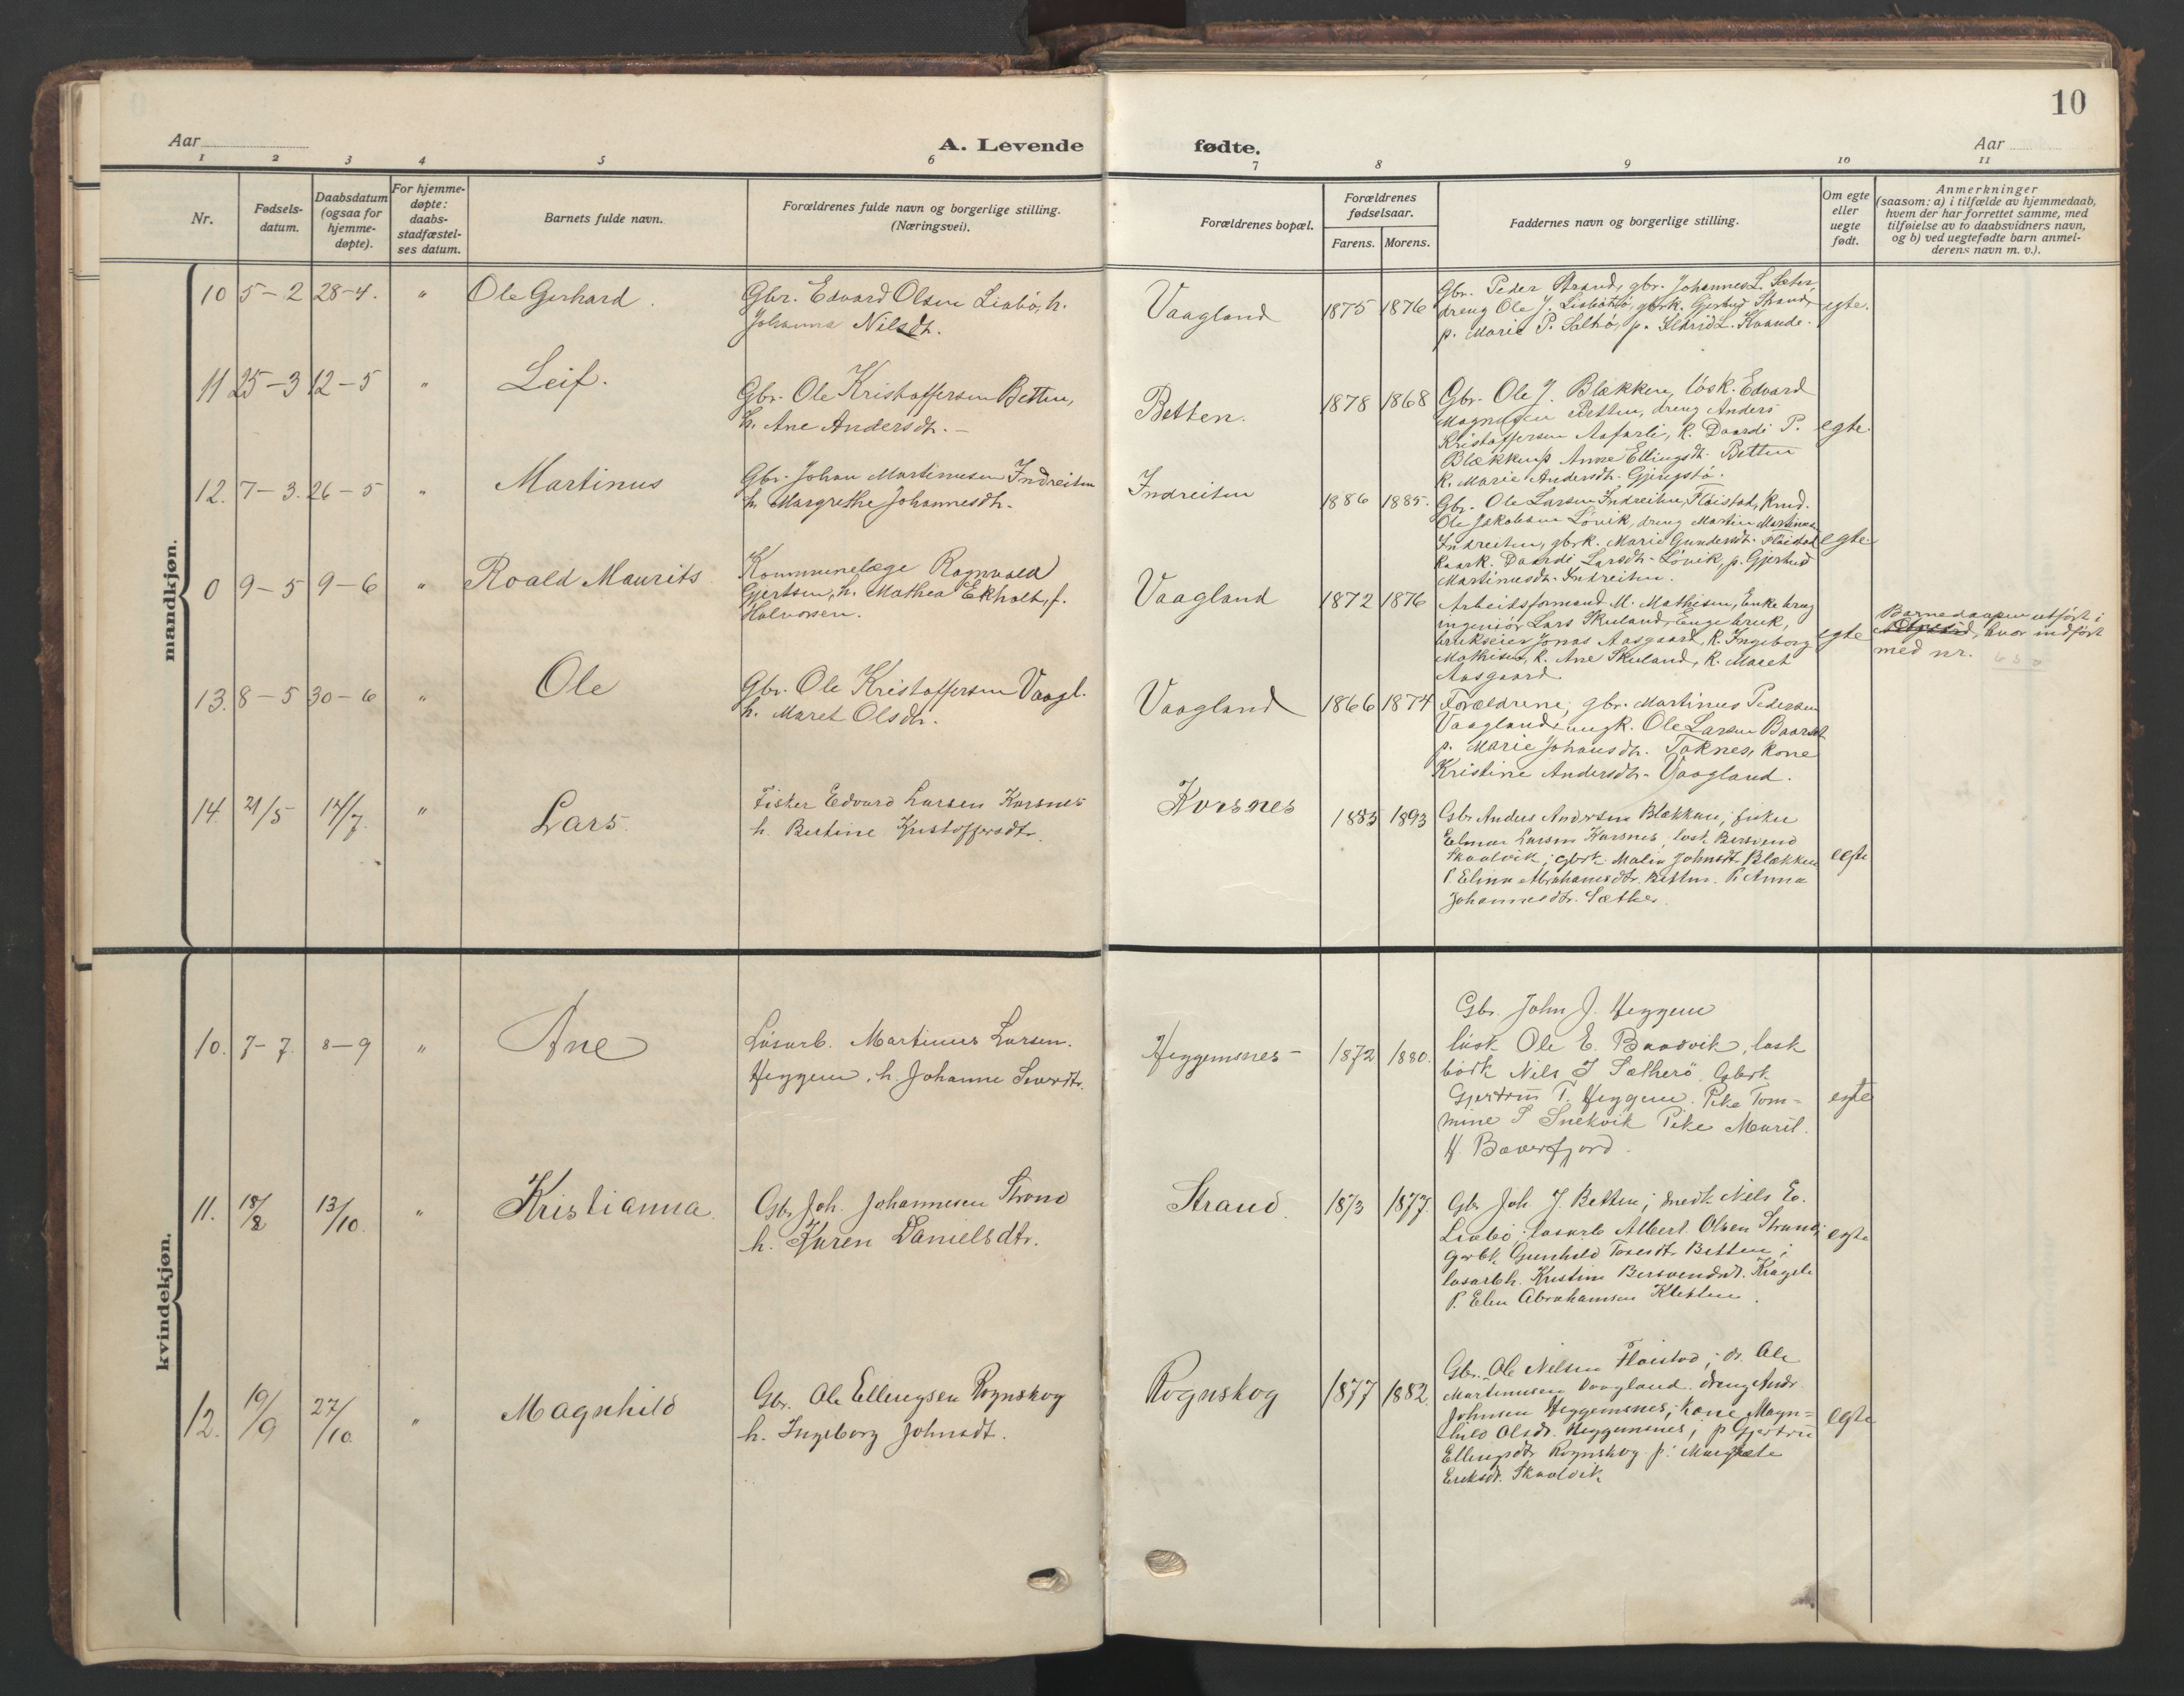 10
Aar
A. Levende
fødte.
Aar
1 2 3 4 5 6 7 8 9 10 11
Nr.
Fødsels-
datum.
Daabsdatum
(ogsaa for
hjemme-
døpte).
For hjemme-
døpte:
daabs-
stadfæstel-
ses datum.
Barnets fulde navn.
Forældrenes fulde navn og borgerlige stilling.
(Næringsvei).
Forældrenes bopæl.
Forældrenes
fødselsaar.
Farens. Morens.
Faddernes navn og borgerlige stilling.
Om egte
eller
uegte
født.
Anmerkninger
(saasom: a) i tilfælde av hjemmedaab,
hvem der har forrettet samme, med
tilføielse av to daabsvidners navn,
og b) ved uegtefødte barn anmel-
derens navn m. v.).
mandkjøn.
10 5-2 28-4. " Ole Gerhard.
Gbr. Edvard Olsen Liabö, h.
Johanna Nilsdt.
Vaagland 1875 1876
Gbr. Peder Strand, gbr. Johannes L. Sæter,
dreng Ole J. gbrk. Gjertrud Strand,
p. Marie P. p. L. Kvande.
egte.
11 25-3 12-5 " Leif.
Gbr. Ole Kristoffersen Betten,
h. Ane Andersdt.-
Betten. 1878 1868
Gbr. Ole J. Blækken, løsk. Edvard
Magnusen Betten, dreng Anders
Kristoffersen Aafarli, k. Daardi P.
Blækken, Anne Ellingsdt. Betten
k. Marie Andersdt. Gjengstø.
egte.
12. 7-3. 26-5 " Martinus
Gbr. Johan Martinusen Indreiten
h. Margrethe Johannesdt.
Indreiten 1886 1885.
Gbr. Ole Larsen Indreiten, Fløistad, Knud.
Ole Jakobsen Lövik, dreng Martin Martinusen
Indreiten, gbrk. Marie Gundersdt. Fløistad
k. Daardi Larsdt. Lövik, p. Gjertrud
Martinusdt. Indreiten.
egte
0 9-5 9-6 " Roald Maurits
Kommunelæge Ragnvald
Gjertsen, h. Mathea Ekholt, f.
Halvorsen.
Vaagland 1872 1876
Arbeidsformand M. Mathisen, Enke brug
ingeniör Lars Skuland, Enge bruk,
brukseier Jonas Aasgaard, k. Ingeborg
Mathisen, k. Ane Skuland, k. Maret
Aasgaard.
egte
Barnedaapen utført i
hvor indført
med nr.
13. 8-5 30-6 " Ole
Gbr. Ole Kristoffersen Vaagl.
h. Maret Olsdt.
Vaagland 1866 1874
Forældrene, gbr. Martinus Pedersen
Vaagland, ungk. Ole Larsen Baarset
p. Marie Johansdt. Taknes, kone
Kristine Andersdt. Vaagland.
14. 21/5 14/7. " Lars.
Fisker Edvard Larsen Korsnes
h. Bertine Kristoffersdtr.
Korsnes 1883 1893
Gbr Anders Andersen Blækken; fisker
Elmar Larsen Korsnes, løsk. Bersvend
Skaalvik; gbrk. Malin Johnsdt. Blækken
P. Elina Abrahamsdtr. Betten. P. Anna
Johannesdtr. Sæther.
egte
kvindekjøn.
10. 7-7. 8-9 " Ane
Løsarb. Martinus Larsen.
Heggem, h. Johanne Siverdtr.
Heggemsnes- 1872 1880.
Gbr. John J. Heggem
løsk Ole E. Baadvik, løsk
Nils J Sætherö. Gbrk
Gjertrud T. Heggem. Pike Tom-
mine S Snekvik Pike Marit
H. Bøverfjord.
egte
11. 18/8 13/10. " Kristianna.
Gbr Joh. Johannesen Strand
h. Karen Danielsdtr.
Strand. 1873 1877.
Gbr Joh J. Betten; Nils E.
Liabö; løsarb Albert Olsen Strand;
Gbrk Gunhild Toresdtr. Betten;
løsarb.h. Kristine Bersvendsdt.
P. Elen Abrahamsen
egte
12. 19/9 27/10 " Magnhild
Gbr. Ole Ellingsen Rognskog
h. Ingeborg Johnsdt.
Rognskog 1877 1882
Gbr. Ole Nilsen Fløistad; dr. Ole
Martinusen Vaagland. dreng Andr.
Johnsen Heggemsnes; kone Magn-
hild Olsdt. Heggemsnes; p Gjertrud
Ellingsdtr Rognskog p. Margrete
Eriksdt. Skaalvik
egte